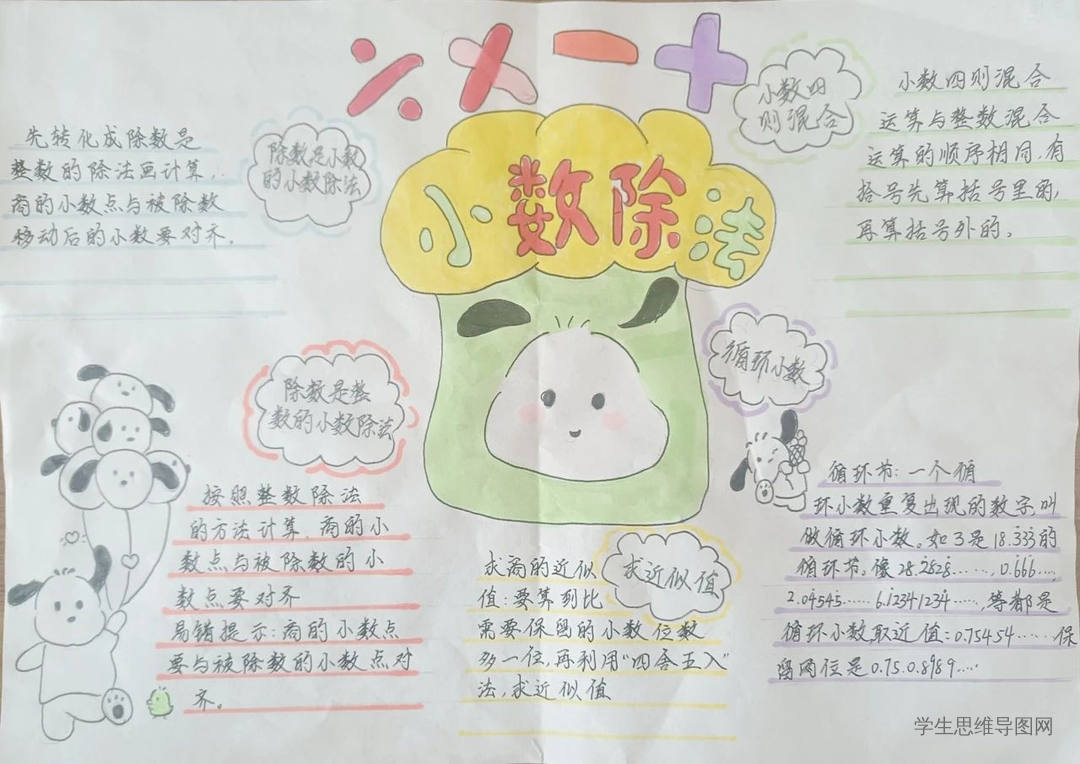 ÷ × − +
小数除法
除数是小数
的小数除法
先转化成除数是
整数的除法画计算,
商的小数点与被除数
移动后的小数要对齐。
小数四
则混合
小数四则混合
运算与整数混合
运算的顺序相同,有
括号先算括号里的,
再算括号外的。
除数是整
数的小数除法
按照整数除法
的方法计算,商的小
数点与被除数的小
数点要对齐
易错提示:商的小数点
要与被除数的小数点对
齐。
求近似值
求商的近似
值:要算到比
需要保留的小数位数
多一位,再利用“四舍五入”
法,求近似值
循环小数
循环节:一个循
环小数重复出现的数字,叫
做循环小数。如3是18.333的
循环节,像28.2828……,0.666…,
2.04545……6.12341234……,等都是
循环小数,取近值:0.75454……保
留两位是0.75.0.8989…
学生思维导图网